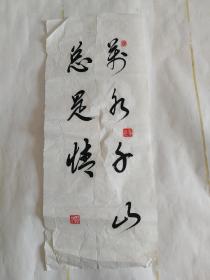 萬水千山
总是情